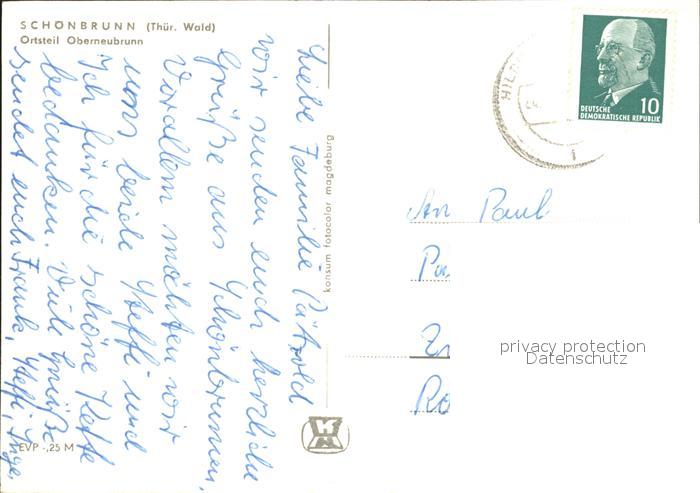 SCHÖNBRUNN (Thür. Wald)
Ortsteil Oberneubrunn
Liebe Familie Pätzold
wir senden euch herzliche
Grüße aus Schönbrunn,
Vorallem möchten wir
uns beide Steffi und
Ich für die schöne Kette
bedanken. Viele Grüße
sendet euch Frank, Steffi, Inge,
konsum fotocolor magdeburg
EVP -,25 M
HILD
DEUTSCHE
DEMOKRATISCHE REPUBLIK
10
An Paul
Pa
Ro
privacy protection
Datenschutz